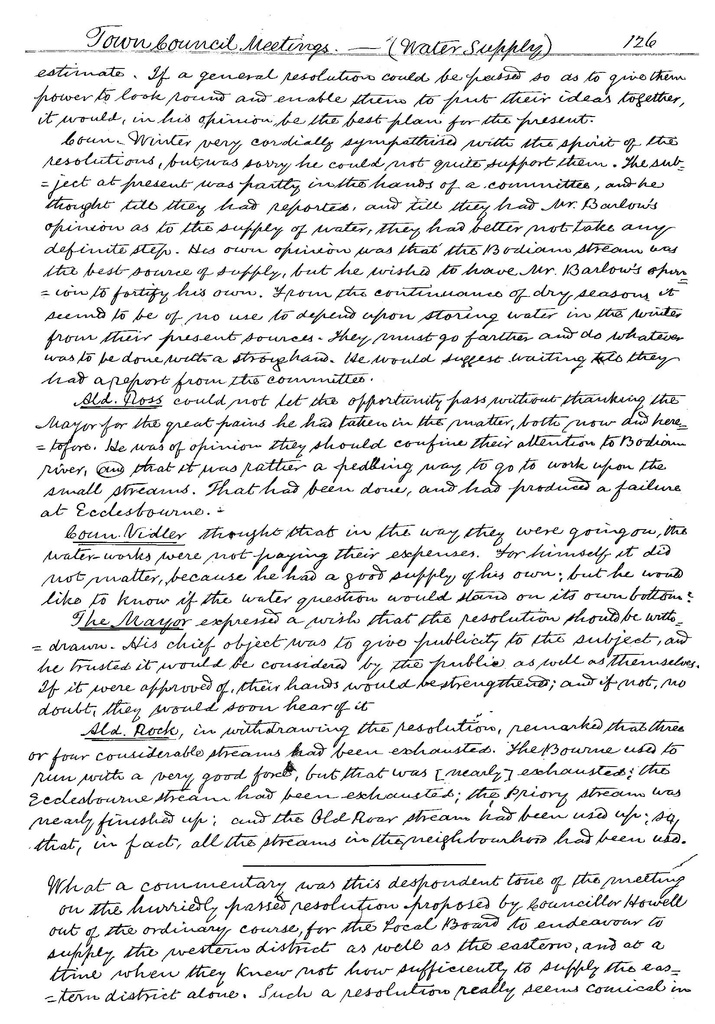 Town Council Meetings. — (Water Supply) 126
estimate. If a general resolution could be passed so as to give them
power to look round and enable them to put their ideas together,
it would, in his opinion be the best plan for the present.
Coun. Winter very cordially sympathised with the spirit of the
resolutions, but was sorry he could not quite support them. The sub-
=ject at present was partly in the hands of a committee, and he
thought till they had reported, and till they had Mr. Barlow's
opinion as to the supply of water, they had better not take any
definite step. His own opinion was that the Bodiam stream was
the best source of supply, but he wished to have Mr. Barlow's opin-
=ion to fortify his own. From the continuance of dry seasons it
seemed to be of no use to depend upon storing water in the winter
from their present sources. They must go farther and do whatever
was to be done with a strong hand. He would suggest waiting till they
had a report from the committee.
Ald. Ross could not let the opportunity pass without thanking the
Mayor for the great pains he had taken in the matter, both now and here=
=tofore. He was of opinion they should confine their attention to Bodiam
river, and that it was rather a peddling way to go to work upon the
small streams. That had been done, and had produced a failure
at Ecclesbourne.-
Coun. Vidler thought that in the way they were going on, the
water-works were not paying their expenses. For himself it did
not matter, because he had a good supply of his own; but he would
like to know if the water question would stand on its own bottom?
The Mayor expressed a wish that the resolution should be with=
=drawn. His chief object was to give publicity to the subject, and
he trusted it would be considered by the public as well as themselves.
If it were approved of, their hands would be strengthened; and if not, no
doubt, they would soon hear of it
Ald. Rock, in withdrawing the resolution, remarked that three
or four considerable streams had been exhausted. The Bourne used to
run with a very good force, but that was [nearly] exhausted; the
Ecclesbourne stream had been exhausted; the Priory stream was
nearly finished up; and the Old Roar stream had been used up; so,
that, in fact, all the streams in the neighbourhood had been used.
What a commentary was this despondent tone of the meeting
on the hurriedly passed resolution proposed by Councillor Howell
out of the ordinary course, for the Local Board to endeavour to
supply the western district as well as the eastern, and at a
time when they knew not how sufficiently to supply the eas=
=tern district alone. Such a resolution really seems comical in